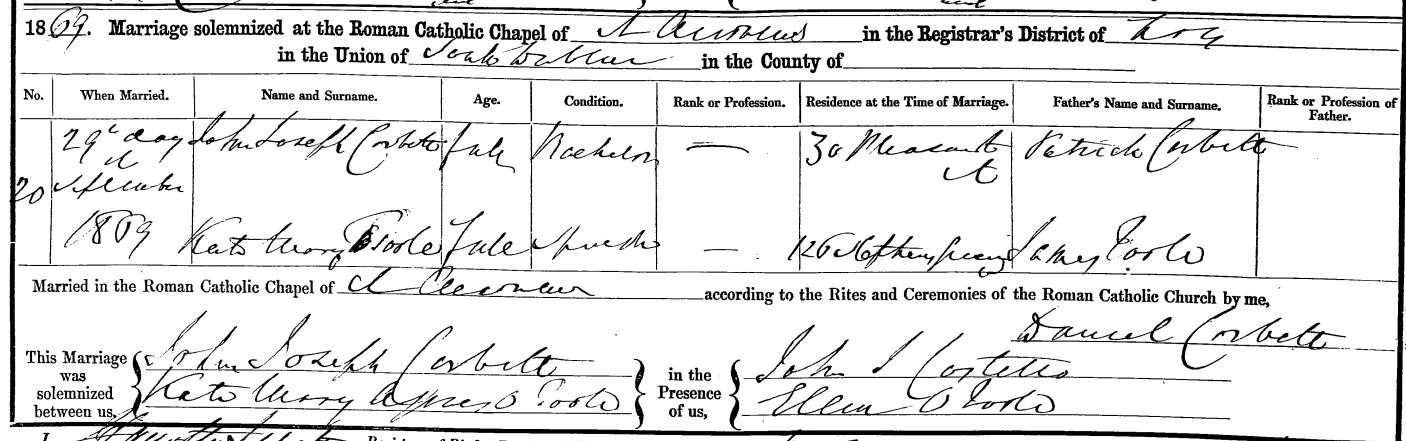 1869. Marriage solemnized at the Roman Catholic Chapel of St in the Registrar's District of
in the Union of South Dublin in the County of
No. When Married. Name and Surname. Age. Condition. Rank or Profession. Residence at the Time of Marriage. Father's Name and Surname. Rank or Profession of Father.
29th day John Joseph Corbett Full Bachelor — 30 Pleasant Patrick Corbett
St
20 September
1869 Kate Mary O'Toole Full Spinster — 126 Stephens Green James Toole
Married in the Roman Catholic Chapel of St according to the Rites and Ceremonies of the Roman Catholic Church by me,
Daniel Corbett
This Marriage was solemnized between us, John Joseph Corbett in the Presence of us, John J Costello
Kate Mary Agnes O Toole Ellen O Toole